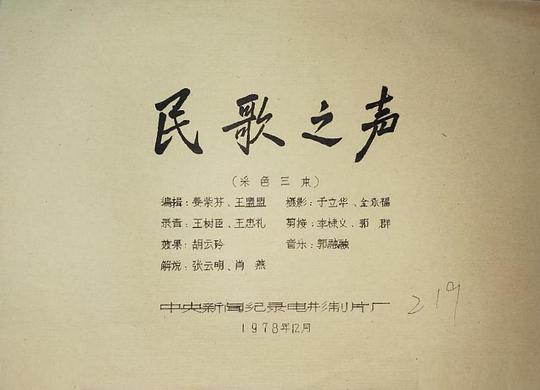 民歌之声
(采色三本)
编辑:姜荣芬、王盟盟 摄影:于立华、金永福
录音:王树臣、王忠礼 剪接:李棣义、郭 群
效果:胡云玲 音乐:郭融融
解说:张云明、肖 燕
中央新闻纪录电影制片厂
1978年12月
219